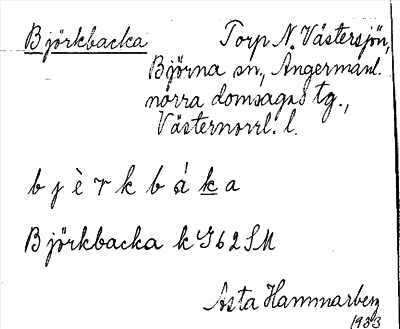 Björkbacka Torp N. Västersjön,
Björna sn., Ångermanl.
norra domsagas tg.,
Västernorrl. l.
b j è r k b á k a
Björkbacka k G 62 SM
Asta Hammarberg
1933